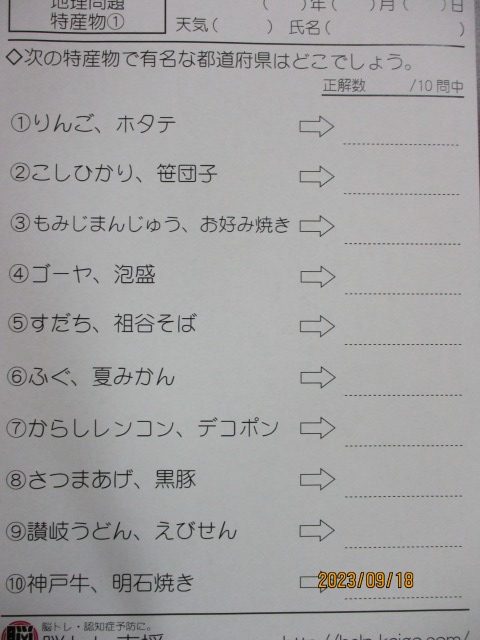 地理問題
特産物①
( )年( )月( )日
天気( ) 氏名( )
◇次の特産物で有名な都道府県はどこでしょう。
正解数 /10問中
①りんご、ホタテ
②こしひかり、笹団子
③もみじまんじゅう、お好み焼き
④ゴーヤ、泡盛
⑤すだち、祖谷そば
⑥ふぐ、夏みかん
⑦からしレンコン、デコポン
⑧さつまあげ、黒豚
⑨讃岐うどん、えびせん
⑩神戸牛、明石焼き
2023/09/18
脳トレ・認知症予防に。